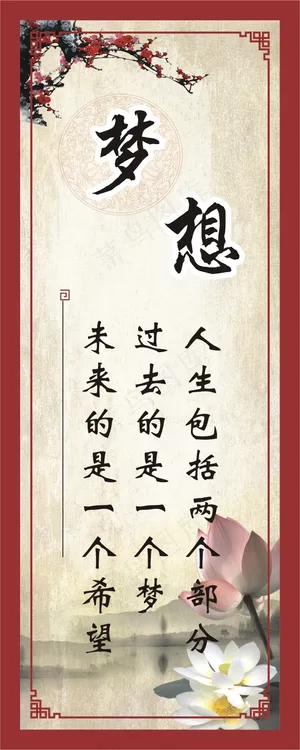 梦想
人生包括两个部分
过去的是一个梦
未来的是一个希望